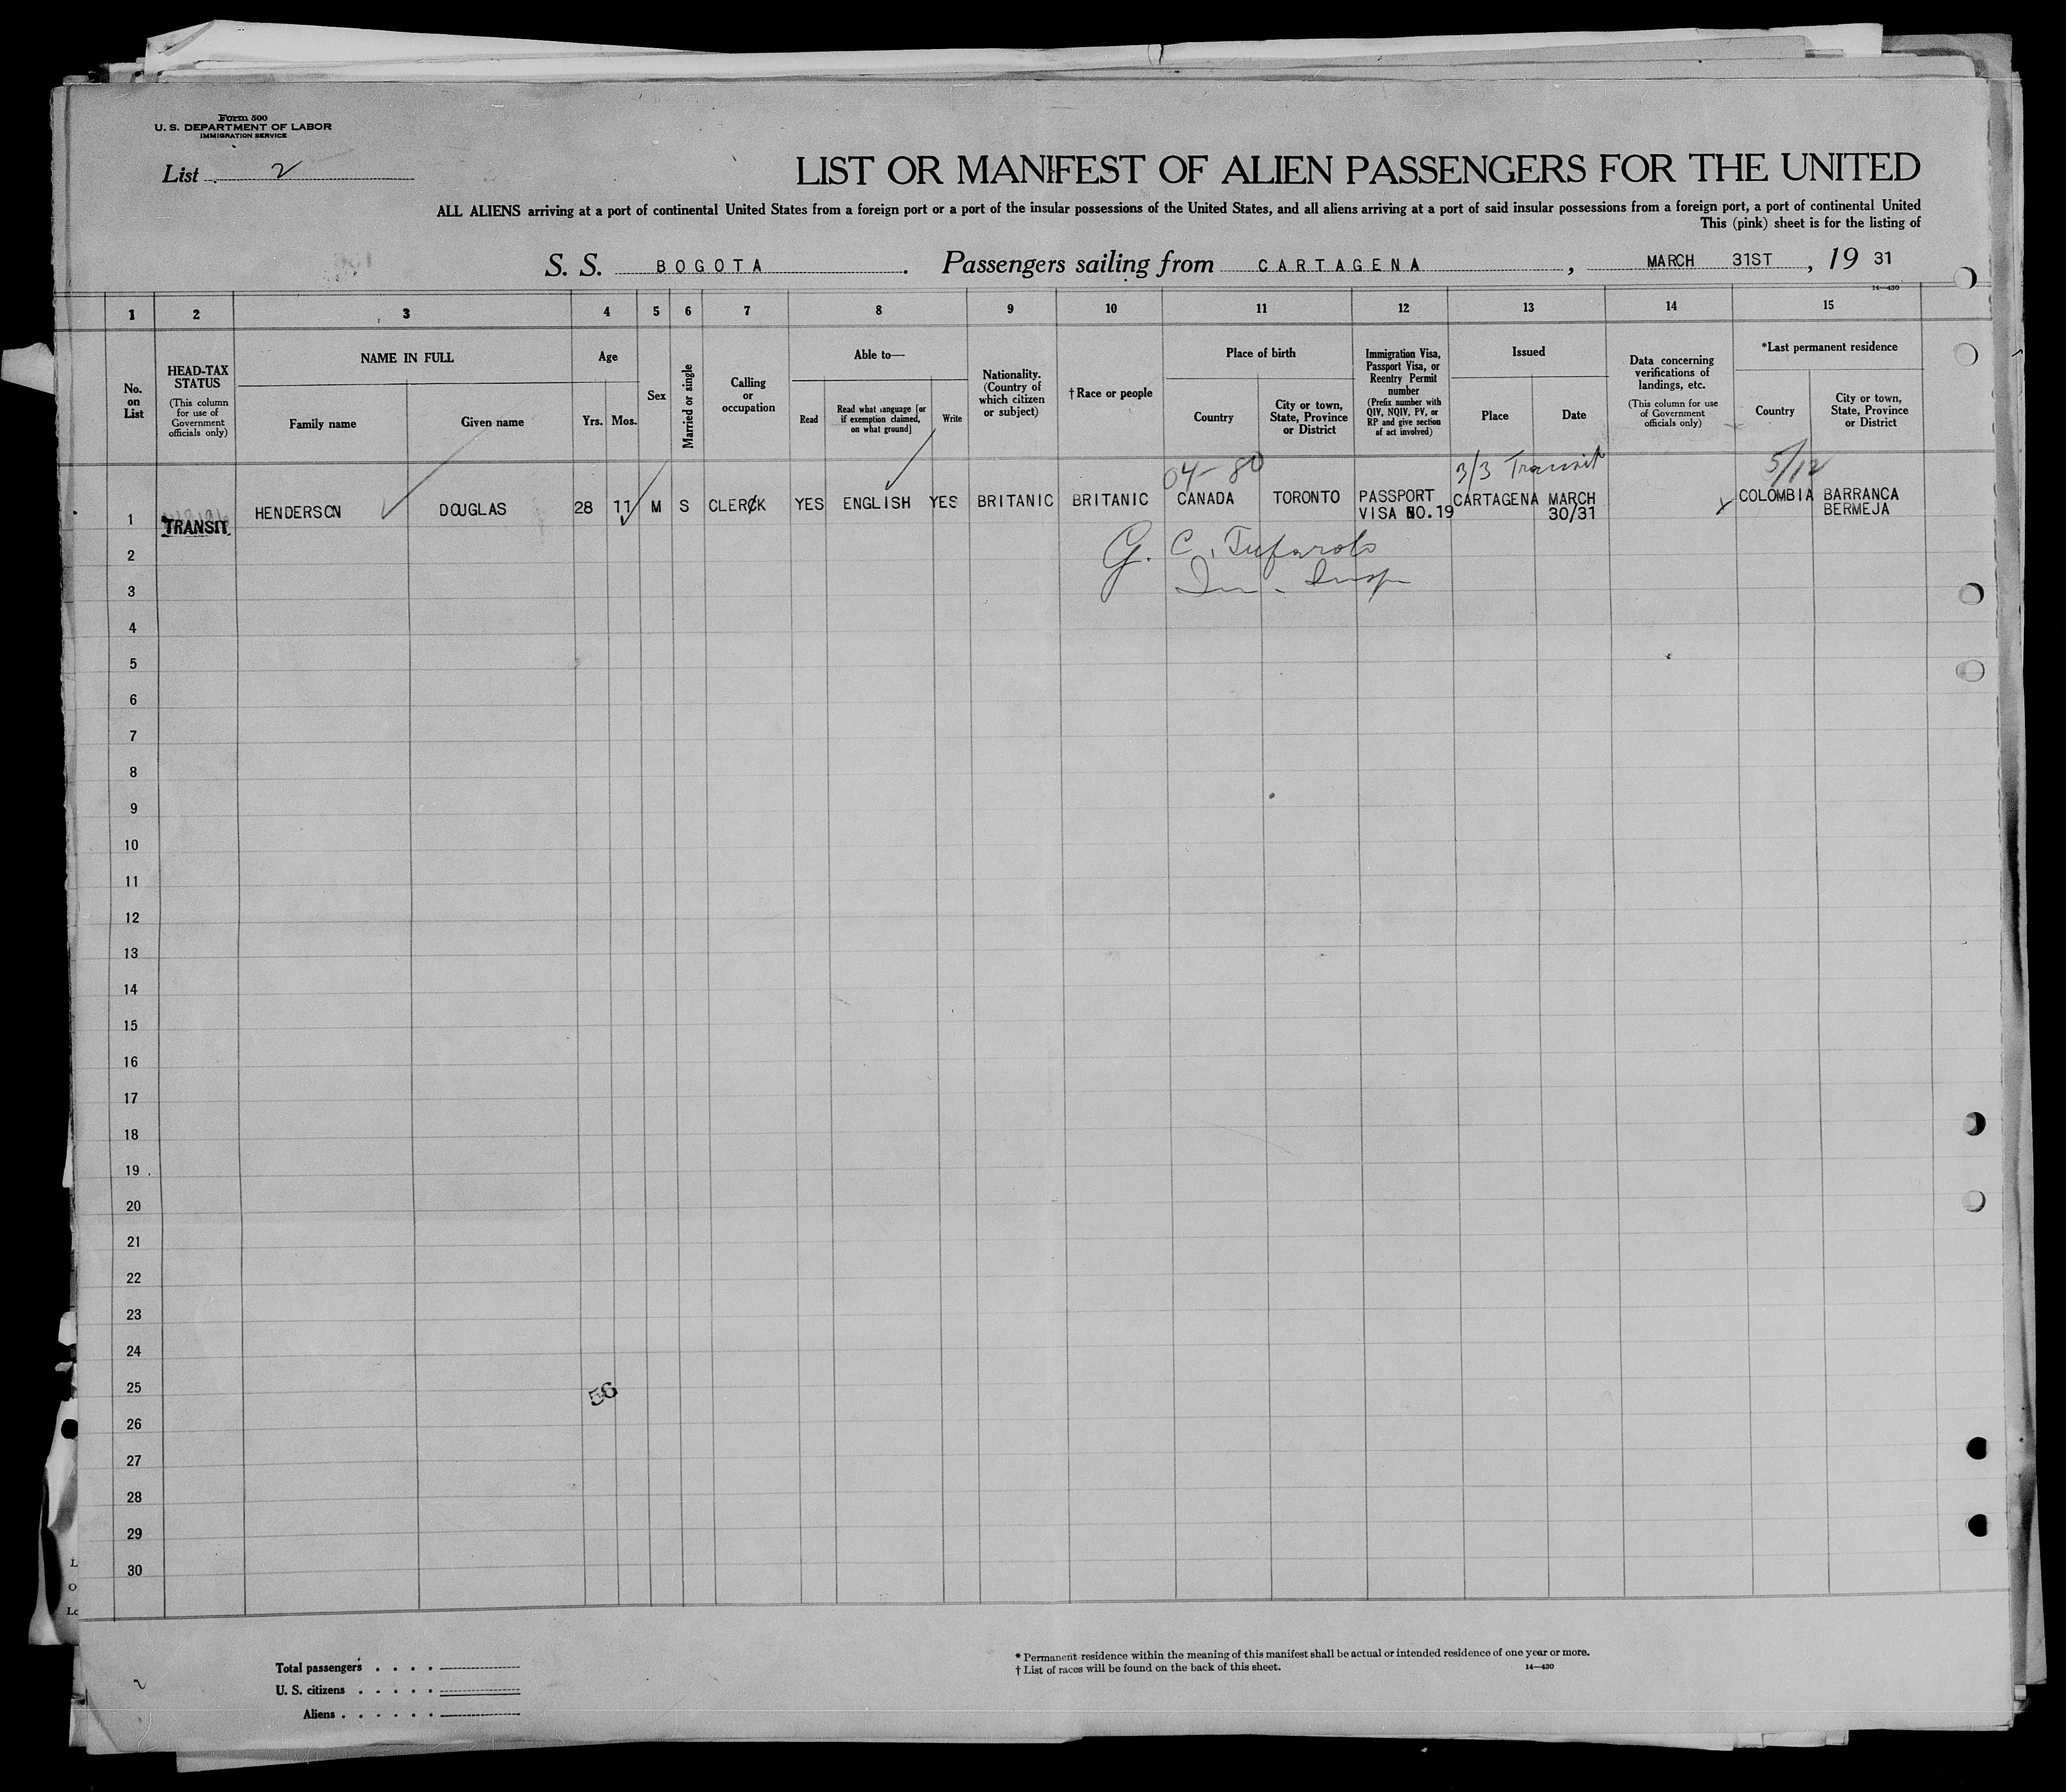 Form 500
U. S. DEPARTMENT OF LABOR
IMMIGRATION SERVICE
List 2
LIST OR MANIFEST OF ALIEN PASSENGERS FOR THE UNITED
ALL ALIENS arriving at a port of continental United States from a foreign port or a port of the insular possessions of the United States, and all aliens arriving at a port of said insular possessions from a foreign port, a port of continental United
This (pink) sheet is for the listing of
S. S. BOGOTA. Passengers sailing from CARTAGENA, MARCH 31ST, 19 31
14—430
1 2 3 4 5 6 7 8 9 10 11 12 13 14 15
No. on List
HEAD-TAX STATUS
(This column for use of Government officials only)
NAME IN FULL
Family name
Given name
Age
Yrs. Mos.
Sex
Married or single
Calling or occupation
Able to—
Read
Read what language [or if exemption claimed, on what ground]
Write
Nationality. (Country of which citizen or subject)
†Race or people
Place of birth
Country
City or town, State, Province or District
Immigration Visa, Passport Visa, or Reentry Permit number
(Prefix number with QIV, NQIV, PV, or RP and give section of act involved)
Issued
Place
Date
Data concerning verifications of landings, etc.
(This column for use of Government officials only)
*Last permanent residence
Country
City or town, State, Province or District
04-80 3/3 Transit 5/12
1 TRANSIT HENDERSON DOUGLAS 28 11 M S CLERK YES ENGLISH YES BRITANIC BRITANIC CANADA TORONTO PASSPORT VISA NO.19 CARTAGENA MARCH 30/31 x COLOMBIA BARRANCA BERMEJA
2 G. C.
3 Im. Insp
4
5
6
7
8
9
10
11
12
13
14
15
16
17
18
19
20
21
22
23
24
25 56
26
27
28
29
30
Total passengers . . . .
U. S. citizens . . . . .
Aliens . . . . . .
* Permanent residence within the meaning of this manifest shall be actual or intended residence of one year or more.
† List of races will be found on the back of this sheet. 14—430
2